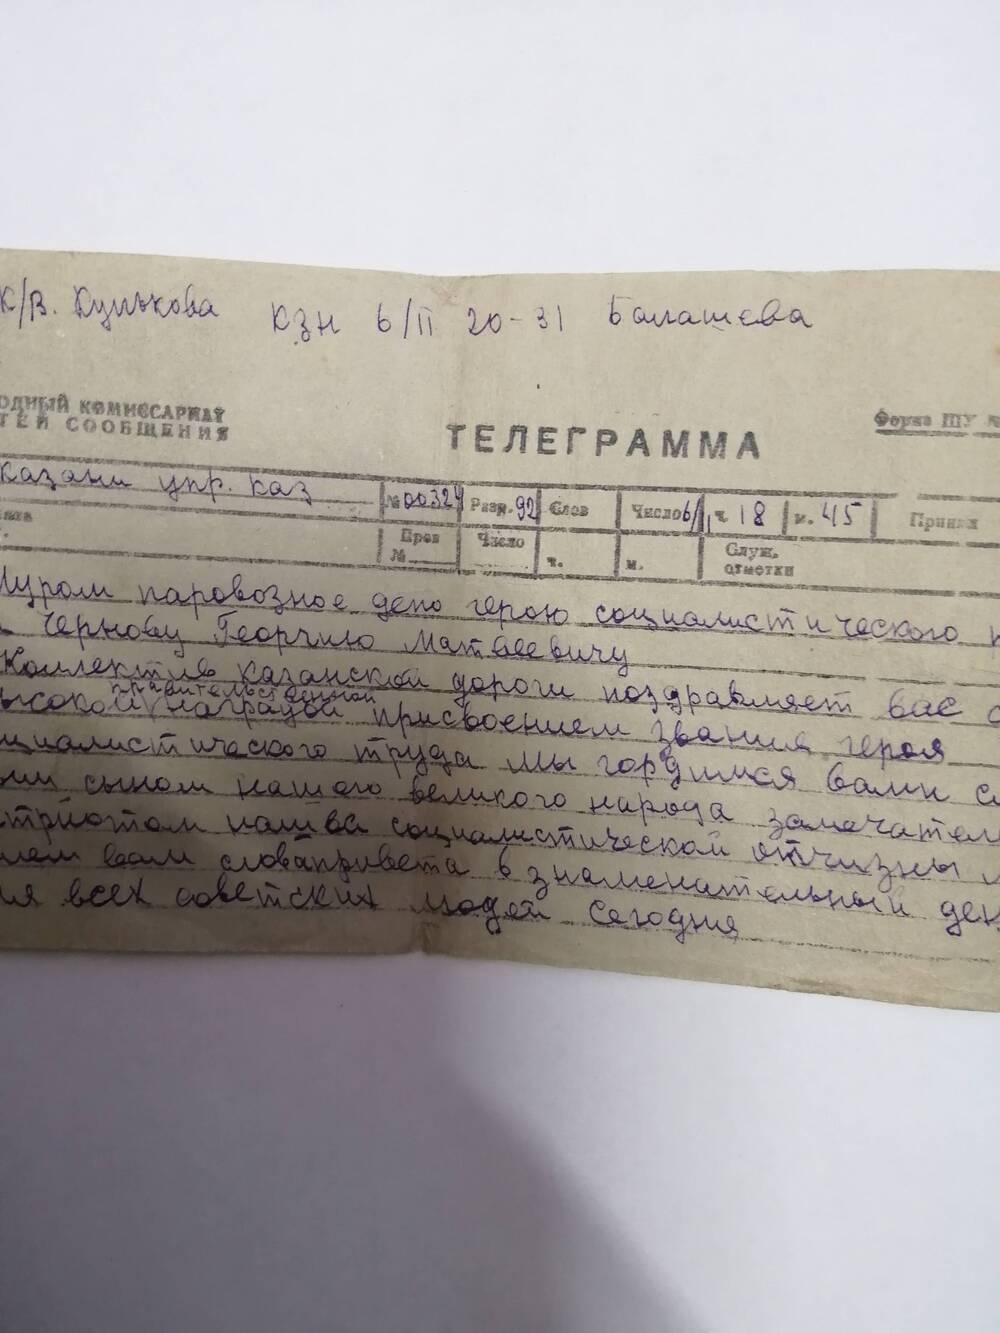 К/В. Кулькова КЗН 6/II 20-31 Балашева
ОДНЫЙ КОМИССАРИАТ
ТЕЙ СООБЩЕНИЯ
ТЕЛЕГРАММА
Форма ТУ №
Казани упр. каз № 00324 Разр. 92 Слов Число 6/ ч. 18 м. 45 Принял
Пров № Число ч. м. Служ. отметки
Муром паровозное депо герою социалистического
Чернову Георгию Матвеевичу
Коллектив казанской дороги поздравляет вас с
ысокой правительственной наградой присвоением звания героя
оциалистического труда мы гордимся вами
ным сыном нашего великого народа замечател
атриотом нашва социалистической отчизны
лем вам словапривета в знаменательный ден
ля всех советских людей сегодня